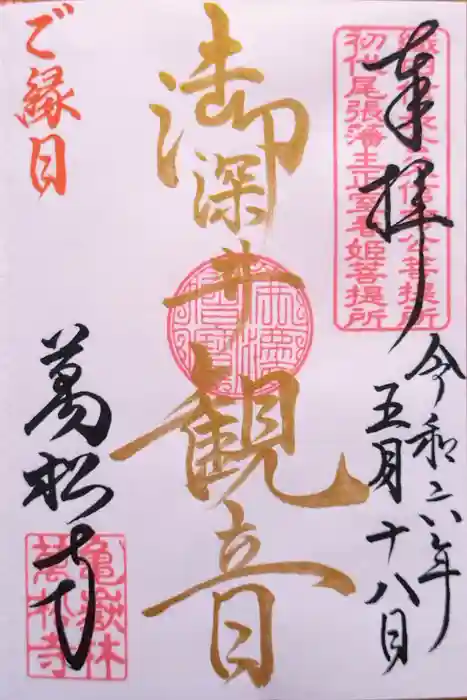 奉拝
初代尾張藩主正室春姫菩提所
令和六年
五月十八日
御深井観音
ご縁日
萬松寺
亀嶽林
萬松寺